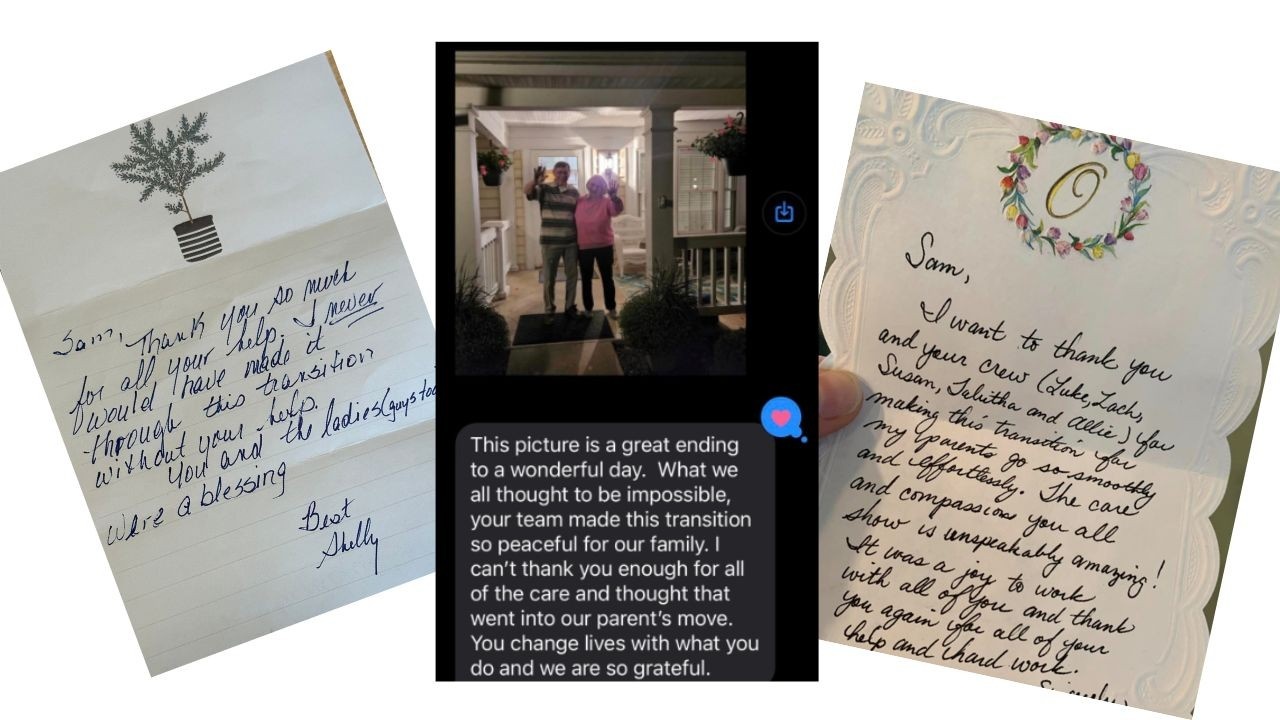 Sam, Thank you so much
for all your help. I never
would have made it
through this transition
without your help.
You and the ladies (guys too
were a blessing
Best
Shelly
This picture is a great ending
to a wonderful day. What we
all thought to be impossible,
your team made this transition
so peaceful for our family. I
can’t thank you enough for all
of the care and thought that
went into our parent’s move.
You change lives with what you
do and we are so grateful.
O
Sam,
I want to thank you
and your crew (Luke, Zach,
Susan, Tabitha and Allie) for
making this transition for
my parents go so smoothly
and effortlessly. The care
and compassion you all
show is unspeakably amazing!
It was a joy to work
with all of you and thank
you again for all of your
help and hard work.